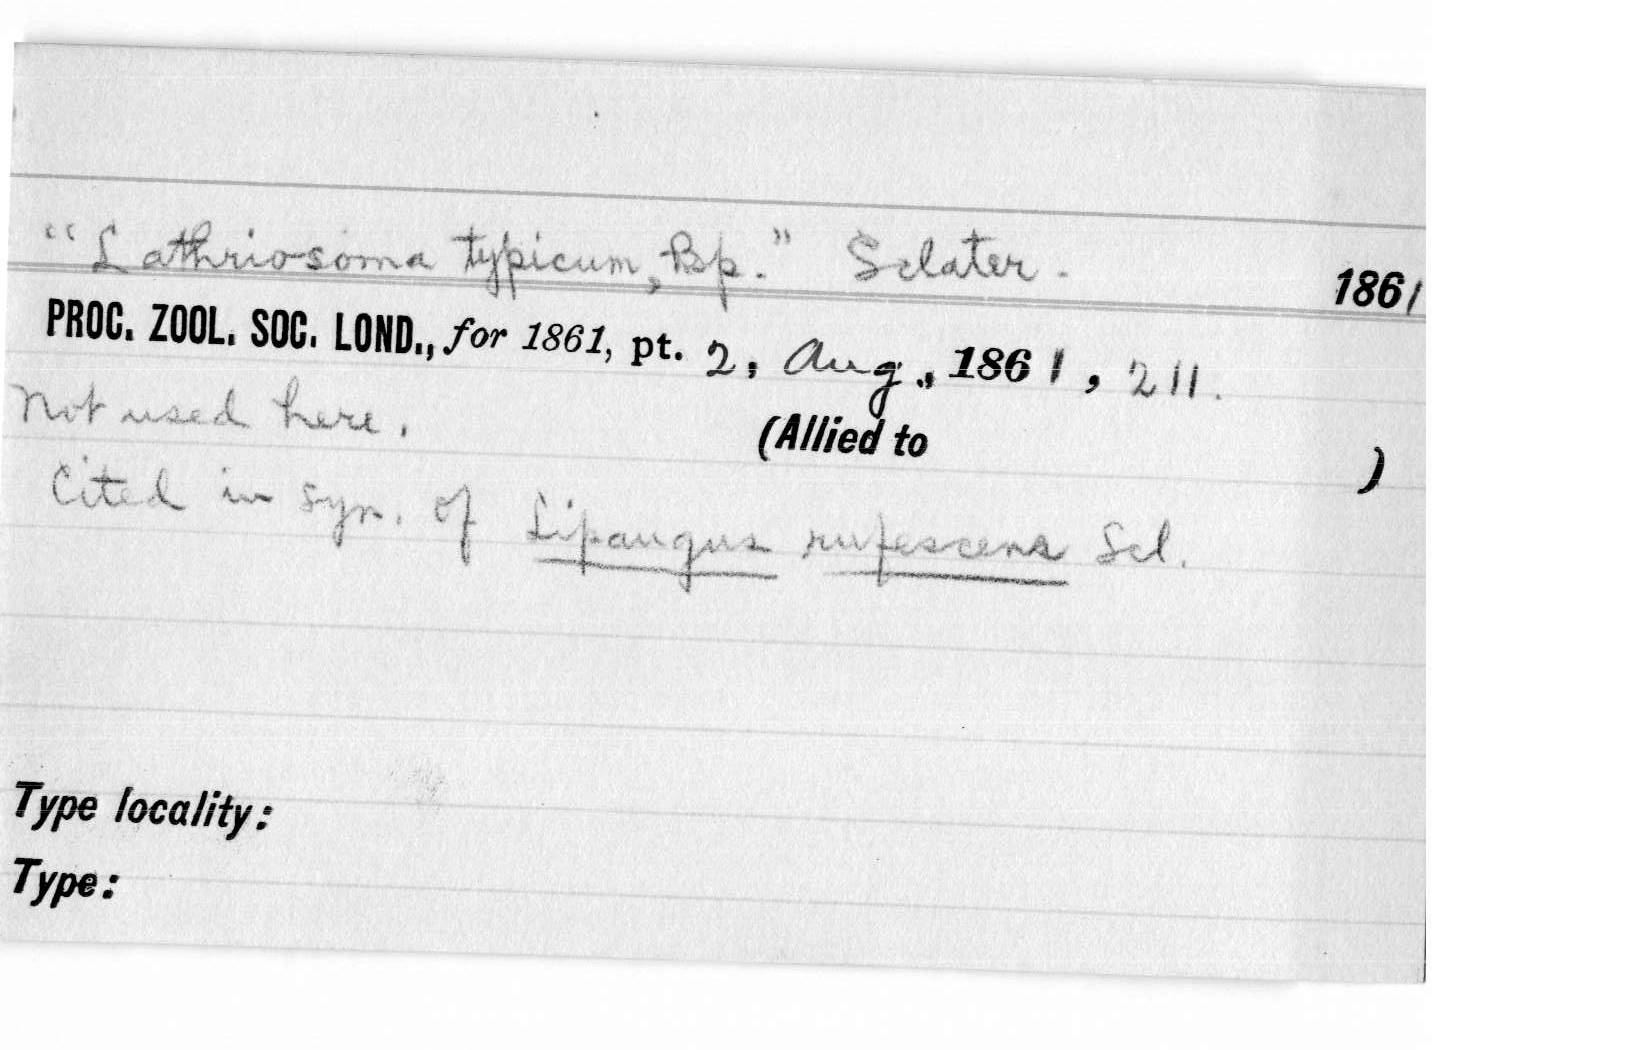 “Lathriosoma typicum, Bp.” Sclater. 1861
PROC. ZOOL. SOC. LOND., for 1861, pt. 2, Aug., 1861, 211.
Not used here.
(Allied to )
Cited in syn. of Lipaugus rufescens Scl.
Type locality:
Type: